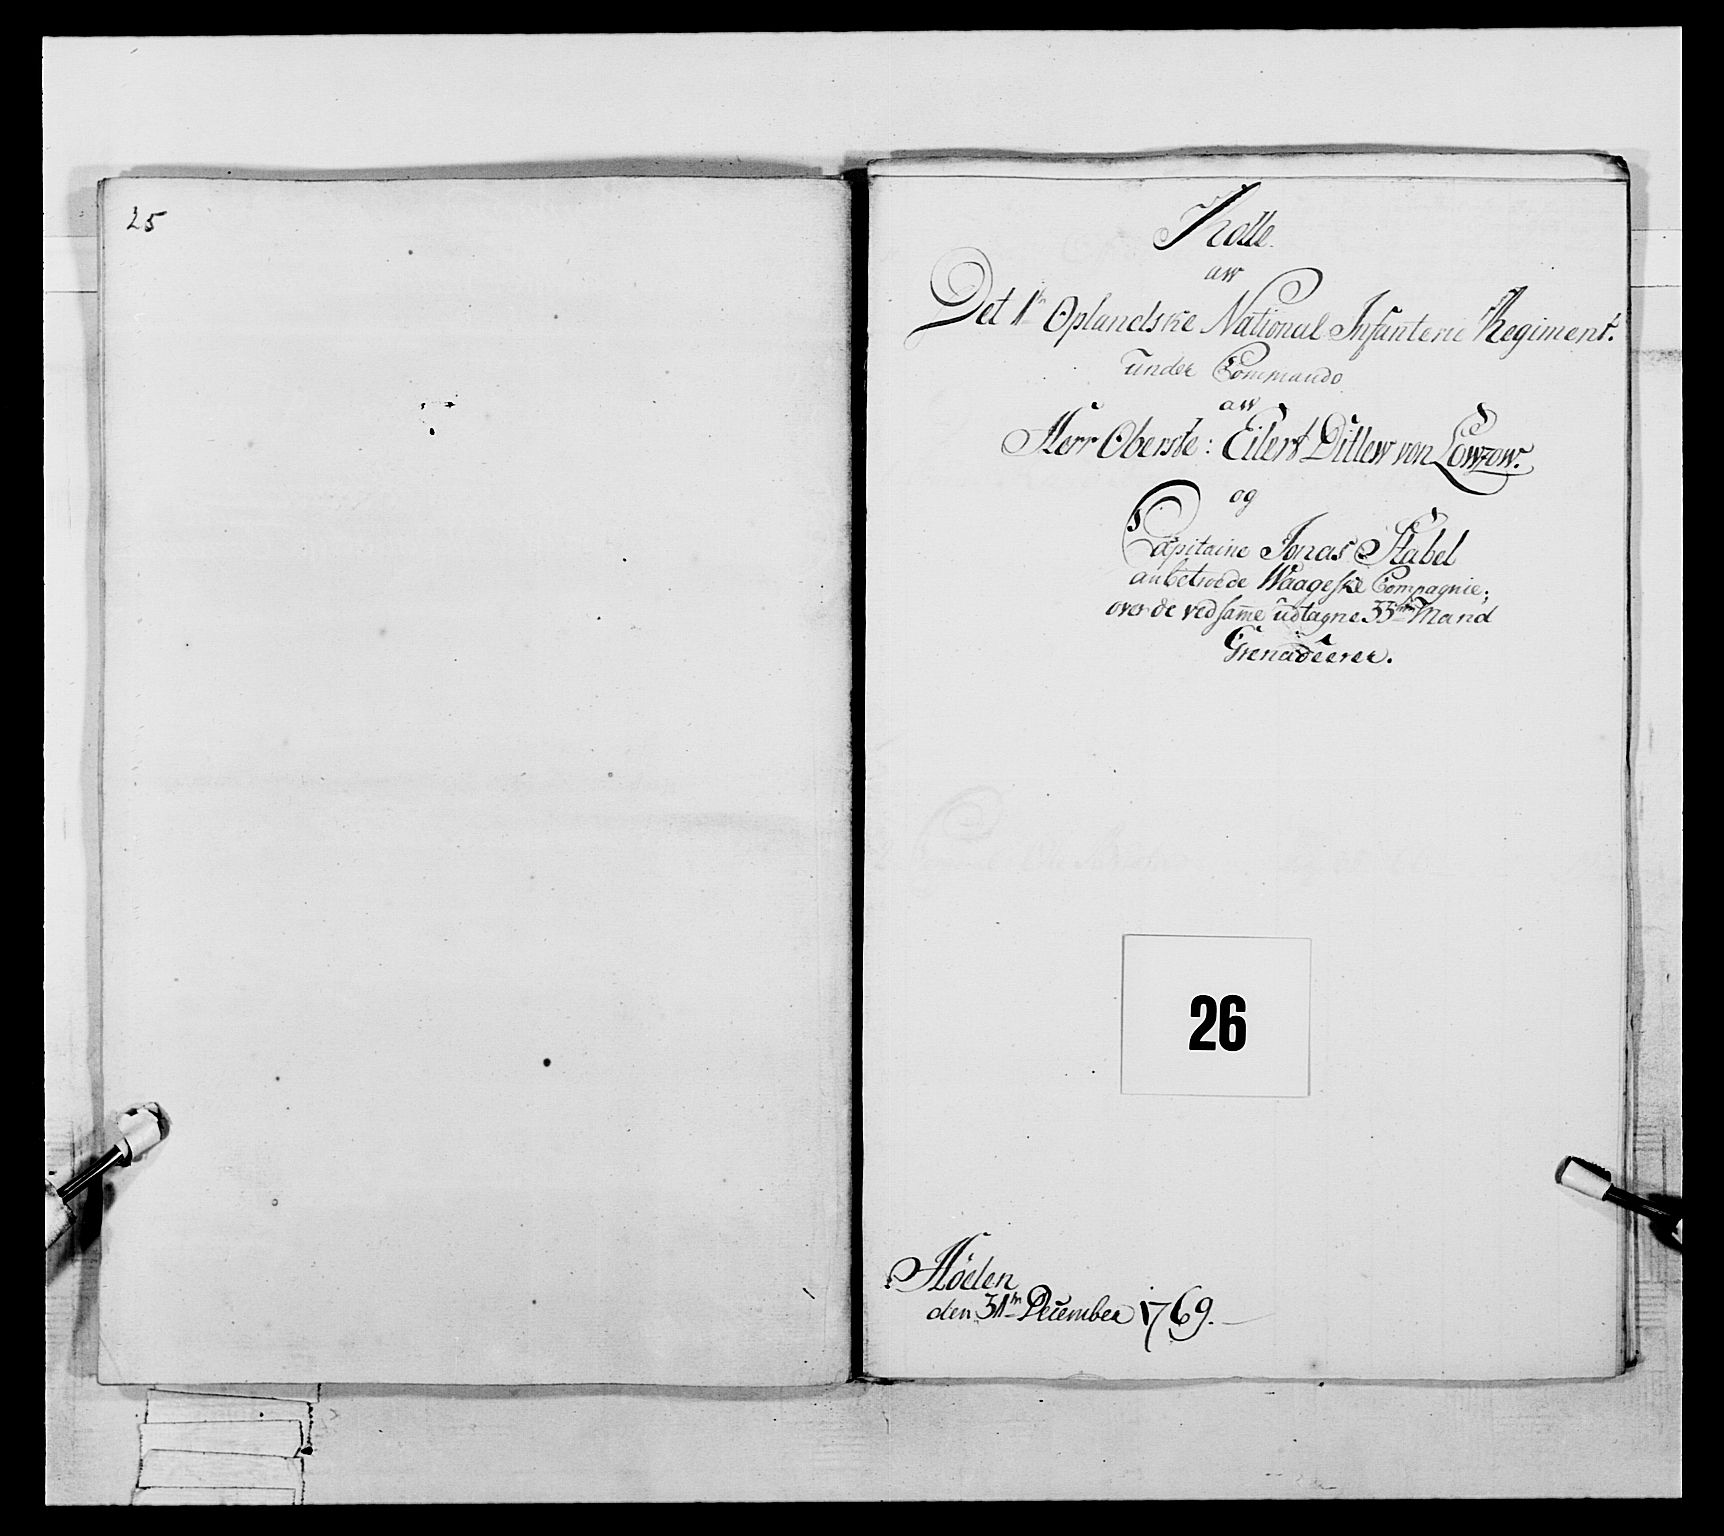 25
Rolle.
aw
Det 1te Oplandske National Infanterie Regiment.
under Commando
aw
Herr Oberste: Eilert Ditlew von Lowzow.
og
Capitaine Jonas Stabel
anbetroede Waageske Compagnie;
over de ved samme udtagne 33 Mand
Grenadeerer.
26
den 31te December 1769.